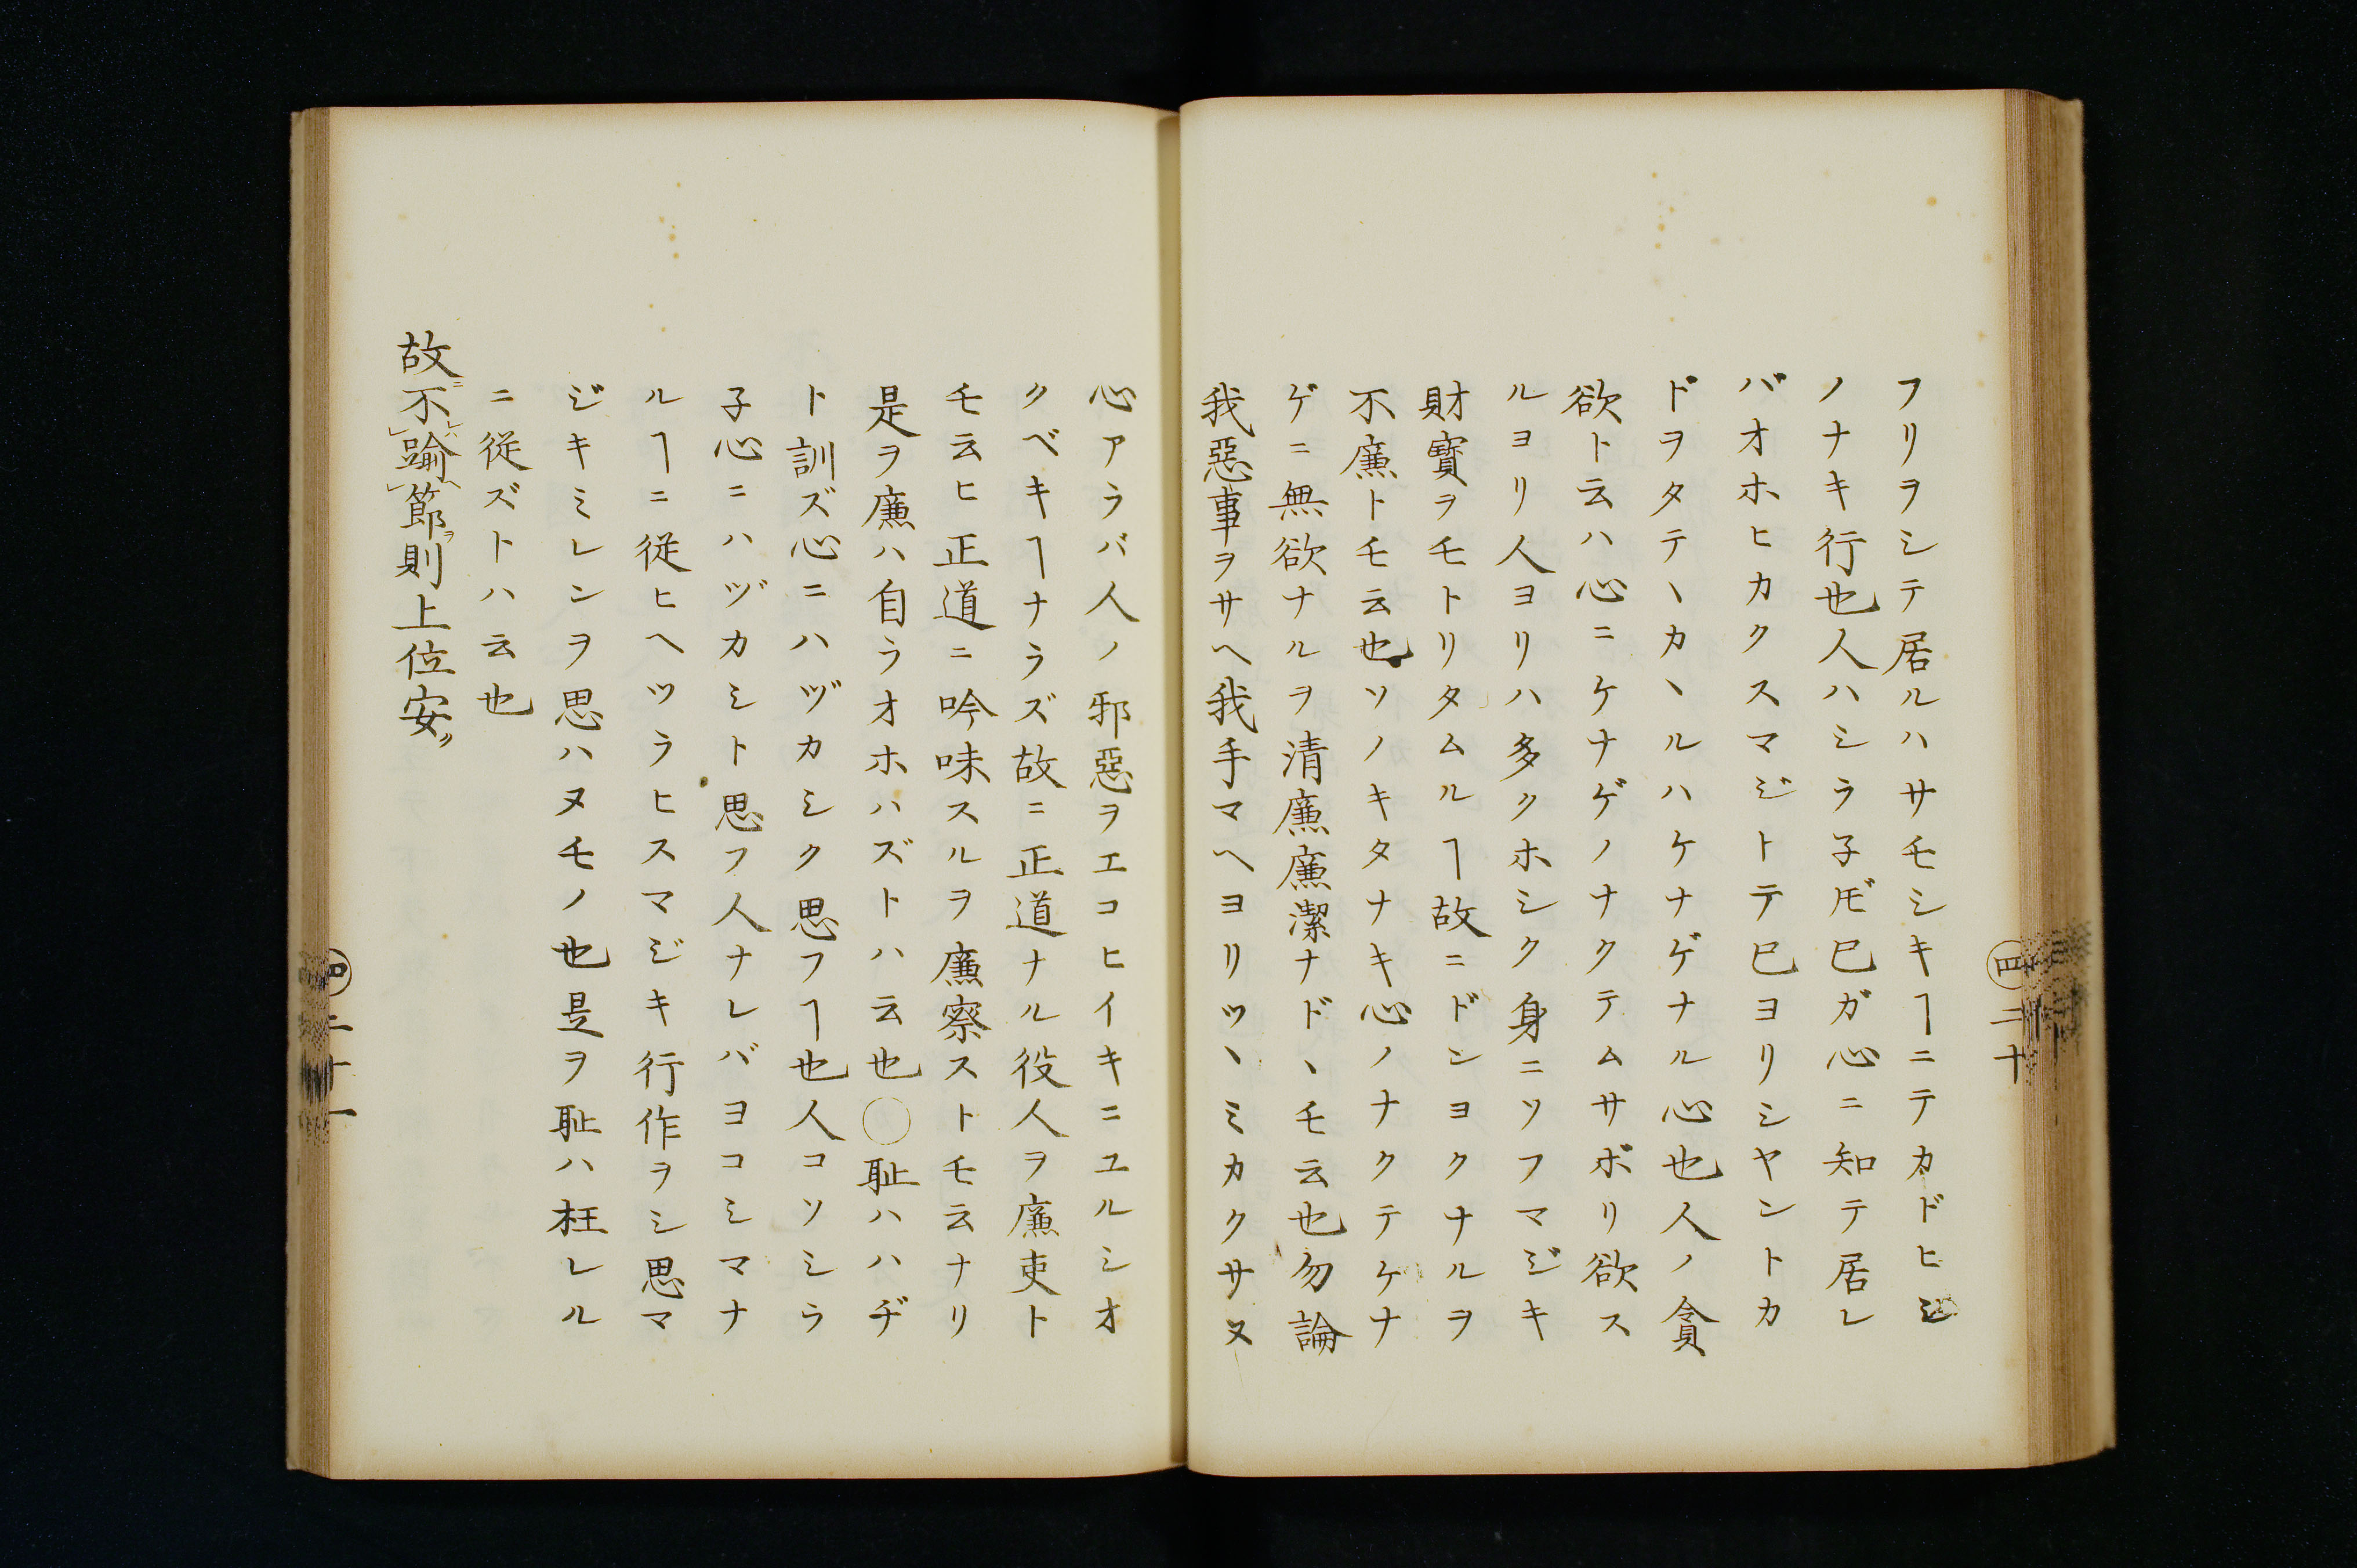 フリヲシテ居ルハサモシキヿニテカドヒシ
ノナキ行也人ハシラ子𪜈巳ガ心ニ知テ居レ
バオホヒカクスマジトテ巳ヨリシヤントカ
ドヲタテヽカヽルハケナゲナル心也人ノ貪
欲ト云ハ心ニケナゲノナクテムサボリ欲ス
ルヨリ人ヨリハ多クホシク身ニソフマジキ
財寳ヲモトリタムルヿ故ニドンヨクナルヲ
不廉トモ云也ソノキタナキ心ノナクテケナ
ゲニ無欲ナルヲ清廉廉潔ナドヽモ云也勿論
我惡事ヲサヘ我手マヘヨリツヽミカクサヌ
四二十
心アラバ人ノ邪惡ヲエコヒイキニユルシオ
クベキヿナラズ故ニ正道ナル役人ヲ廉吏ト
モ云ヒ正道ニ吟味スルヲ廉察ストモ云ナリ
是ヲ廉ハ自ラオホハズトハ云也〇耻ハハヂ
ト訓ズ心ニハヅカシク思フヿ也人コソシラ
子心ニハヅカシト思フ人ナレバヨコシマナ
ルヿニ従ヒヘツラヒスマジキ行作ヲシ思マ
ジキミレンヲ思ハヌモノ也是ヲ耻ハ枉レル
ニ従ズトハ云也
故ニ不レバ踰ヘ節ヲ則上位安ク
四二十一